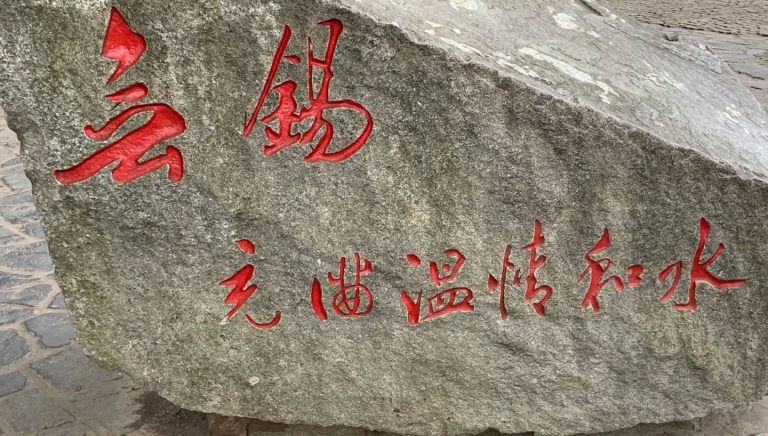 无锡
充满温情和水